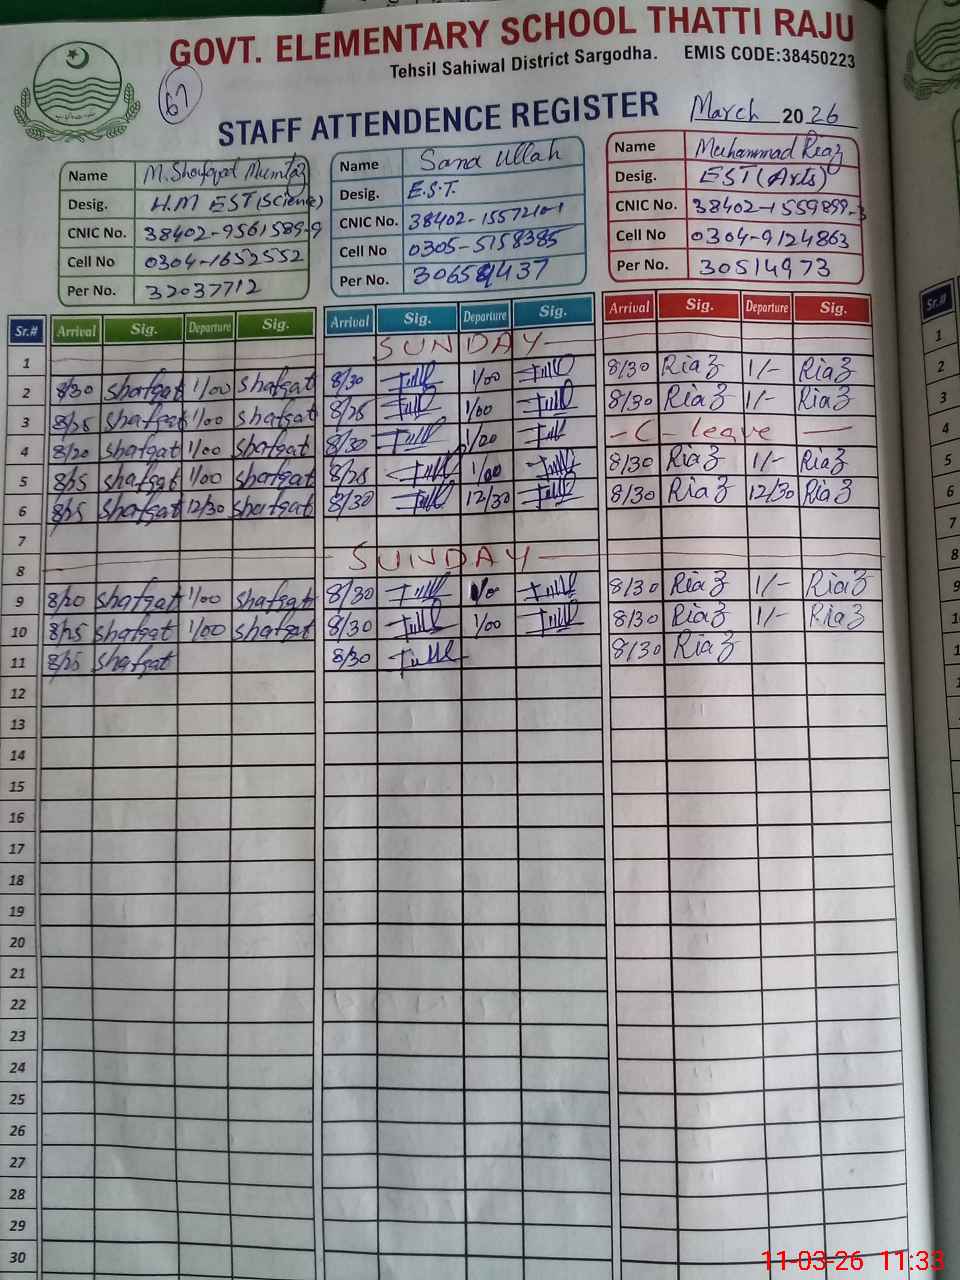 GOVT. ELEMENTARY SCHOOL THATTI RAJU
Tehsil Sahiwal District Sargodha. EMIS CODE:38450223
67
STAFF ATTENDENCE REGISTER March 2026
Name M. Shafqat Mumtaz Name Sana Ullah Name Muhammad Riaz
Desig. H.M EST(Science) Desig. E.S.T. Desig. EST(Arts)
CNIC No. 38402-9561589-9 CNIC No. 38402-1557210-1 CNIC No. 38402-1559899-3
Cell No 0304-1652552 Cell No 0305-5158385 Cell No 0304-9124863
Per No. 32037712 Per No. Per No. 30514973
Sr.# Arrival Sig. Departure Sig. Arrival Sig. Departure Sig. Arrival Sig. Departure Sig.
1 SUNDAY 1
2 8/30 Shafqat 1/00 Shafqat 8/30 1/00 8/30 Riaz 1/- Riaz 2
3 8/25 Shafqat 1/00 Shafqat 8/25 1/00 8/30 Riaz 1/- Riaz 3
4 8/20 Shafqat 1/00 Shafqat 8/30 1/00 - C - leave - 4
5 8/25 Shafqat 1/00 Shafqat 8/25 1/00 8/30 Riaz 1/- Riaz 5
6 8/25 Shafqat 12/30 Shafqat 8/30 12/30 8/30 Riaz 12/30 Riaz 6
7 7
8 SUNDAY 8
9 8/20 Shafqat 1/00 Shafqat 8/30 8/30 Riaz 1/- Riaz 9
10 8/25 Shafqat 1/00 Shafqat 8/30 1/00 8/30 Riaz 1/- Riaz
11 8/25 Shafqat 8/30 8/30 Riaz
12
13
14
15
16
17
18
19
20
21
22
23
24
25
26
27
28
29
30
11-03-26 11:33